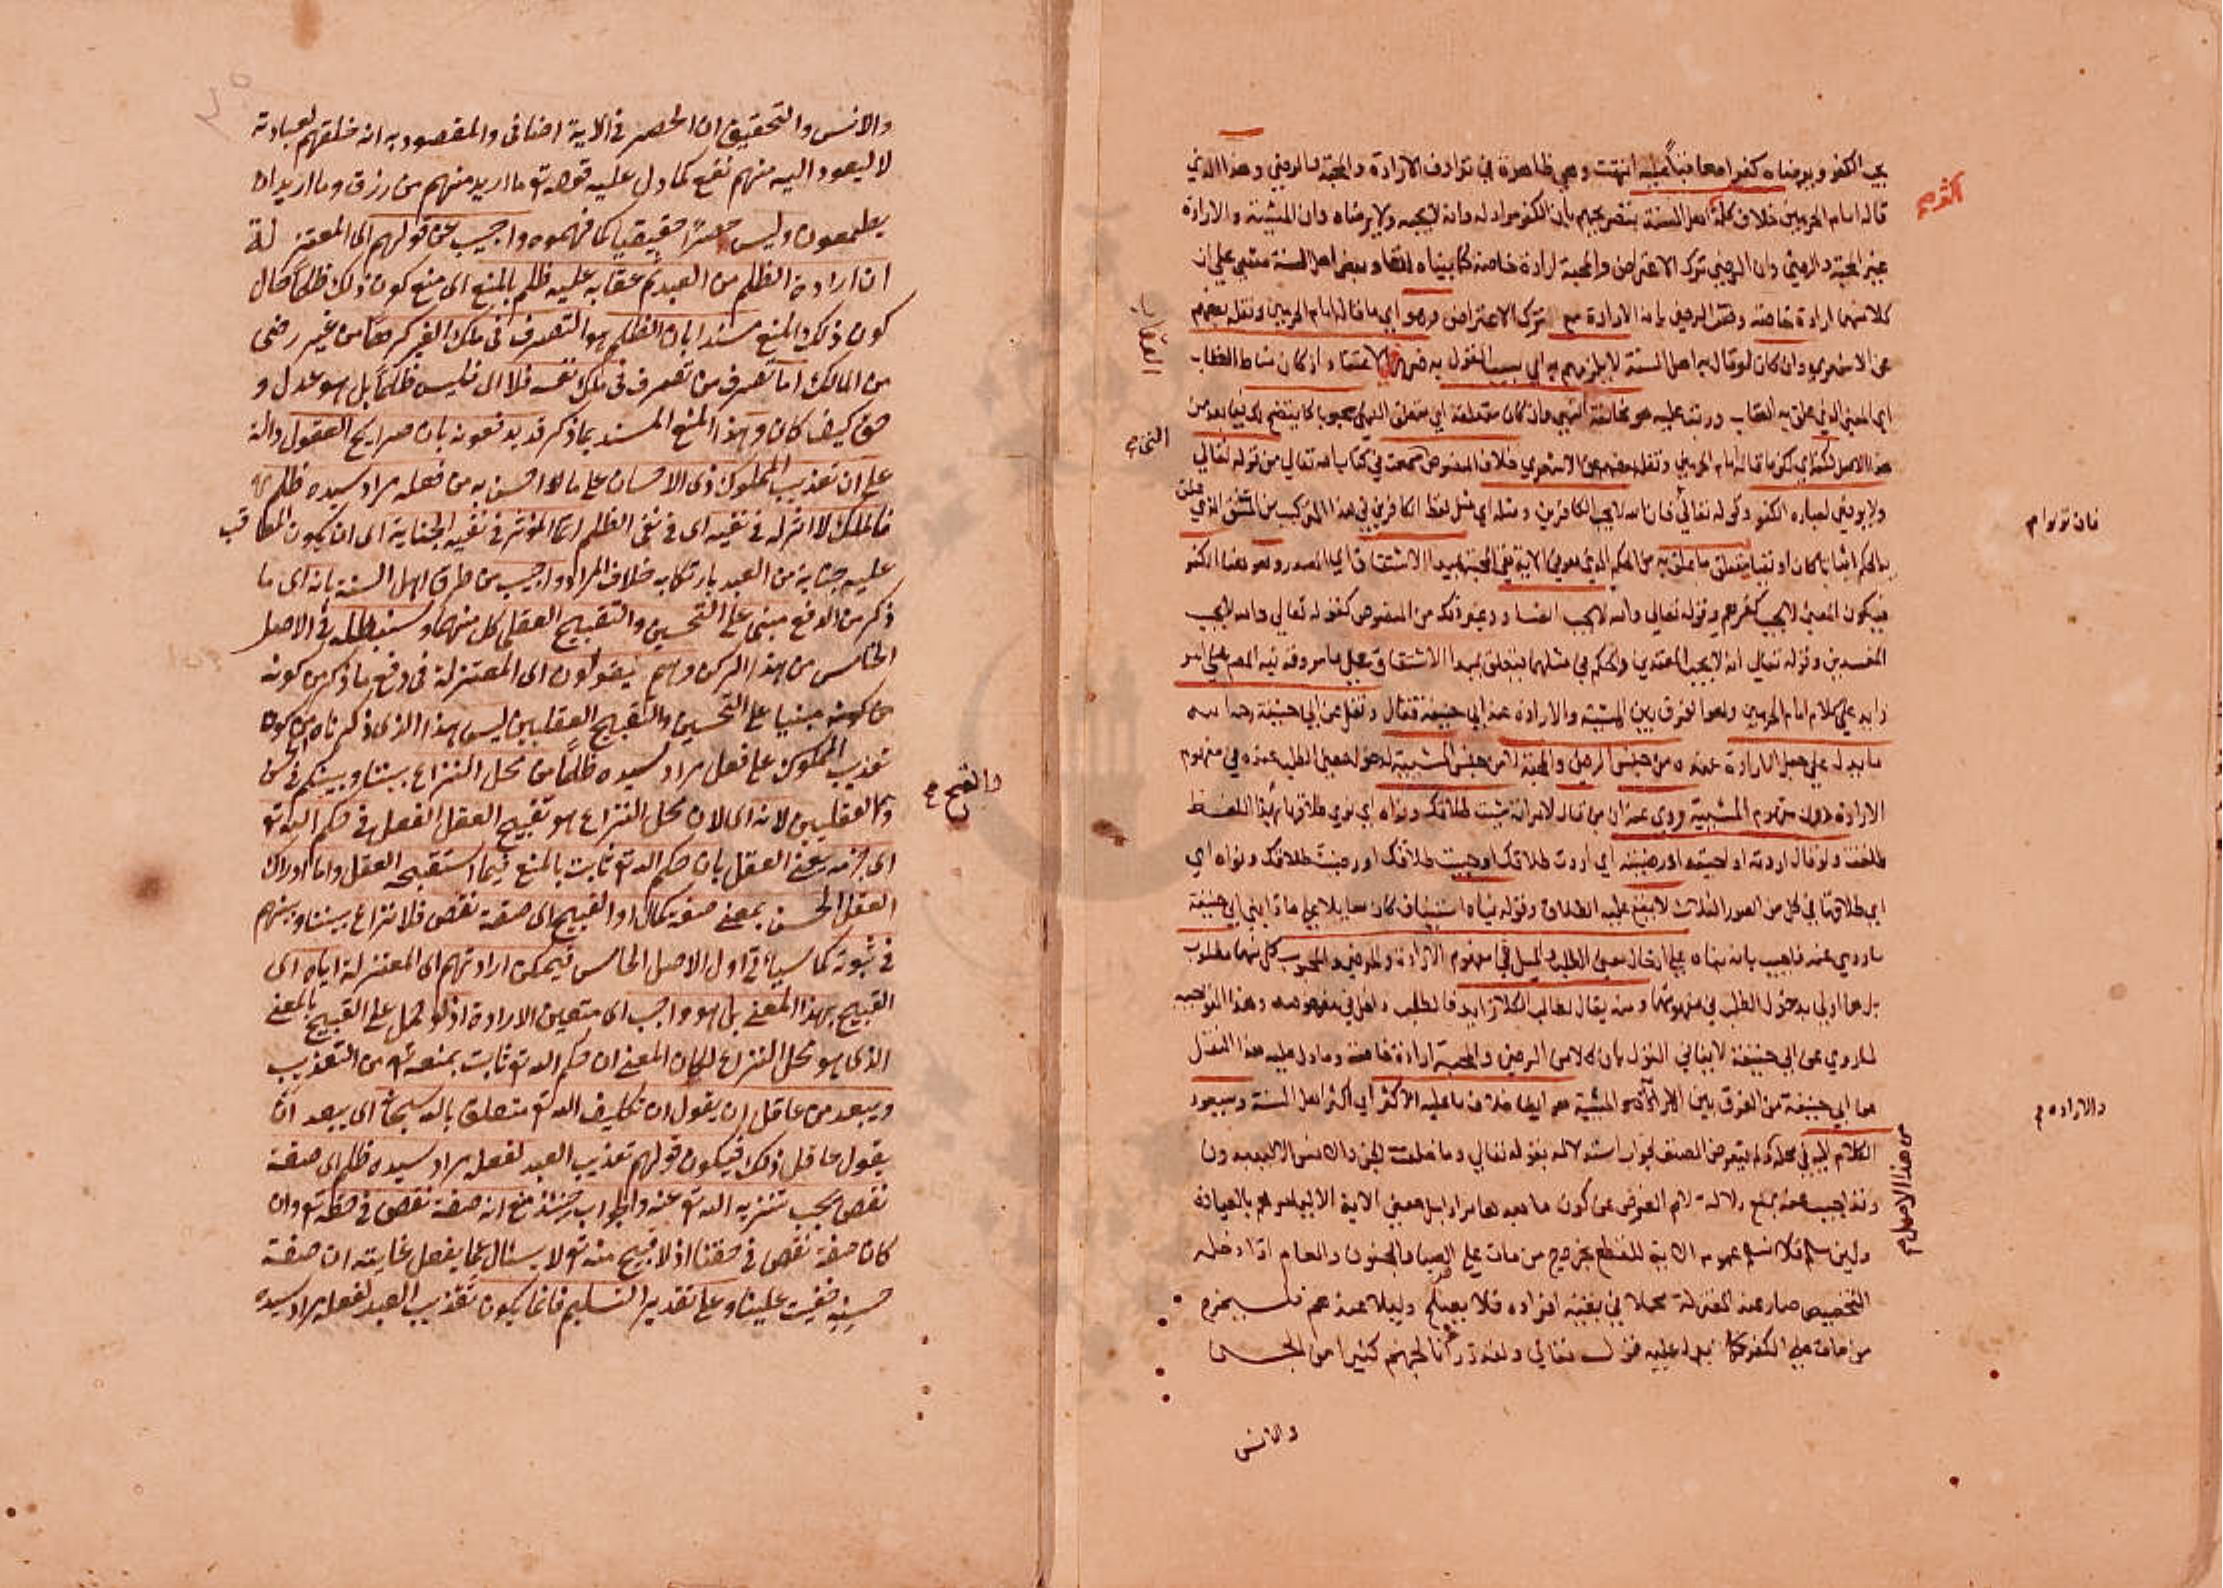 يحب الكفر ويرضاه كفرا معاقبا عليه انتهت وهي ظاهرة في ترادف الارادة والمحبة والرضي وهذا الذي
اكثر صح
قاله امام الحرمين خلاف كلمة اهل السنة بتصريحهم بان الكفر مراد له وانه لا يحبه ولا يرضاه وان المشيئة والارادة
غير المحبة والرضي وان الرضي ترك الاعتراض والمحبة ارادة خاصة كما بيناه انفا وبعض اهل السنة مشي علي ان
كلا منهما ارادة خاصة وفسر الرضي بانه الارادة مع ترك الاعتراض وهو اي ما قاله امام الحرمين ونقله بعضهم
عن الاشعري وان كان لو قال به اهل السنة لا يلزمهم به اي بسبب القول به ضرر في الاعتقاد اذ كان مناط العقاب
العقاب
اي المعني الذي علق به العقاب ورتب عليه هو مخالفة النهي وان كان متعلقه اي متعلق النهي محبوبا كما يتضح لك فيما بعد من
هذا الاصل لكنه اي لكن ما قاله امام الحرمين ونقله بعضهم عن الاشعري خلاف النصوص سمعت في كتاب الله تعالي من قوله تعالي
ولا يرضي لعباده الكفر وقوله تعالي فان الله لا يحب الكافرين ومثله اي مثل لفظ الكافرين في هذا التركيب من المشتق الذي علق
فان تولوا صح
به الحكم اثباتا كان او نفيا يتعلق ما علق به من الحكم الذي هو في الاية نفي المحبة بمبدا الاشتقاق اي المصدر وهو هنا الكفر
فيكون المعني لا يحب كفرهم وقوله تعالي والله لا يحب الفساد ونحو ذلك من النصوص كقوله تعالي والله لا يحب
المفسدين وقوله تعالي انه لا يحب المعتدين والحكم في مثلهما يتعلق بمبدا الاشتقاق علي ما مر وقد نبه المصنف علي امر
زايد علي كلام امام الحرمين وهو الفرق بين المشيئة والارادة عند ابي حنيفة فقال ونقل عن ابي حنيفة رحمه الله
ما يدل علي جعل الارادة عنده من جنس الرضي والمحبة لا من جنس المشيئة لدخول معني الطلب عنده في مفهوم
الارادة دون مفهوم المشيئة روي عنه ان من قال لامراته شئت طلاقك ونواه اي نوي طلاقها بهذا اللفظ
طلقت ولو قال اردته او احببته او رضيته اي اردت طلاقك او احببت طلاقك او رضيت طلاقك ونواه اي
اي طلاقها في كل من الصور الثلاث لا يقع عليه الطلاق وقوله بناه استيناف كان سايلا يقول علي ماذا بني ابي حنيفة
ما روي عنه فاجيب بانه بناه علي ادخال معني الطلب والميل في مفهوم الارادة والمرضي والمحبوب كل منهما مطلوب
بل هما اولي بدخول الطلب في مفهومهما ومنه يقال لطالب الكلا رايد فالطلب داخل في مفهومه وهذا التوجيه
لما روي عن ابي حنيفة لا ينافي القول بان كلا من الرضي والمحبة ارادة خاصة وما دل عليه هذا النقل
عن ابي حنيفة من الفرق بين الارادة والمشية هو ايضا خلاف ما عليه الاكثر اي اكثر اهل السنة وسيعود
والارادة صح
الكلام اليه في محله ولم يتعرض المصنف لجواب استدلالهم بقوله تعالي وما خلقت الجن والانس الا ليعبدون
من هذا الاصل صح
وقد اجيب عنه بمنع دلالة لام الغرض علي كون ما بعدها مرادا بل معني الاية الا ليامرهم بالعبادة
ولئن سلم فلا نسلم عموم الاية للقطع بخروج من مات علي الصبا والجنون والعام اذا دخله
التخصيص صار عند المعتزلة مجملا في بقية افراده فلا يصلح دليلا عندهم فليخرج
من مات علي الكفر كما يدل عليه قوله تعالي ولقد ذرانا لجهنم كثيرا من الجن
والانس
والانس والتحقيق ان الحصر في الاية اضافي والمقصود به انه خلقهم لعبادته
لا ليعود اليه منهم نفع كما دل عليه قوله تع ما اريد منهم من رزق وما اريد ان
يطعمون وليس حصرا حقيقيا كما فهموه واجيب عن قولهم اى المعتزلة
ان ارادة الظلم من العبد ثم عقابه عليه ظلم بالمنع اى منع كون ذلك ظلما حال
كون ذلك المنع مسندا بان الظلم هو التصرف فى ملك الغير كرها من غير رضى
من المالك اما تصرف من تصرف فى ملك نفسه فلا اى فليس ظلما بل هو عدل و
حق كيف كان وهذا المنع المسند بما ذكر قد يدفعونه بان صرايح العقول دالة
على ان تعذيب المملوك ذى الاحسان على ما لا احسن به من فعله مراد سيده ظلم
فالملك لا اثر له فى نفيه اى فى نفى الظلم انما المؤثر فى نفيه الجناية اى ان يكون المعاقب
عليه جناية من العبد بارتكابه خلاف المراد واجيب من طرق اهل السنة بانه اى ما
ذكر من الدفع مبنى على التحسين والتقبيح العقلى كل منهما وسنبطله فى الاصل
الخامس من هذا الركن وهم يقولون اى المعتزلة فى دفع ما ذكر من كونه
من كونه مبنيا على التحسين والتقبيح العقليين ليس هذا الذى ذكرناه من كون
تعذيب المملوك على فعل مراد سيده ظلما من محل النزاع بيننا وبينكم فى الحسن
والقبح صح
العقليين لانه اى لان محل النزاع هو تقبيح العقل الفعل فى حكم الله تع
اى جزمه يعنى العقل بان حكم الله تع ثابت بالمنع فيما استقبحه العقل واما ادراك
العقل الحسن بمعنى صفة كمال او القبيح اى صفة نقص فلا نزاع بيننا وبينهم
فى ثبوته كما سيأتى اول الاصل الخامس فيمكن ارادتهم اى المعتزلة اياه اى
القبيح بهذا المعنى بل هو واجب اى متعين الارادة اذ لو حمل على القبيح بالمعنى
الذى هو محل النزاع لكان المعنى ان حكم الله تع ثابت بمنعه تع من التعذيب
ويبعد من عاقل ان يقول ان تكليف الله تع متعلق بالله سبحانه اى يبعد ان
يقول عاقل ذلك فيكون قولهم تعذيب العبد لفعله مراد سيده ظلم اى صفة
نقص يجب تنزيه الله تع عنه والجواب حينئذ منع انه صفة نقص فى حقه تع وان
كان صفة نقص فى حقنا اذ لا قبيح منه تع لا يسئال عما يفعل غايته ان صفة
حسنه خفيت علينا وعلى تقدير التسليم فانما يكون تعذيب العبد لفعله مراد سيده